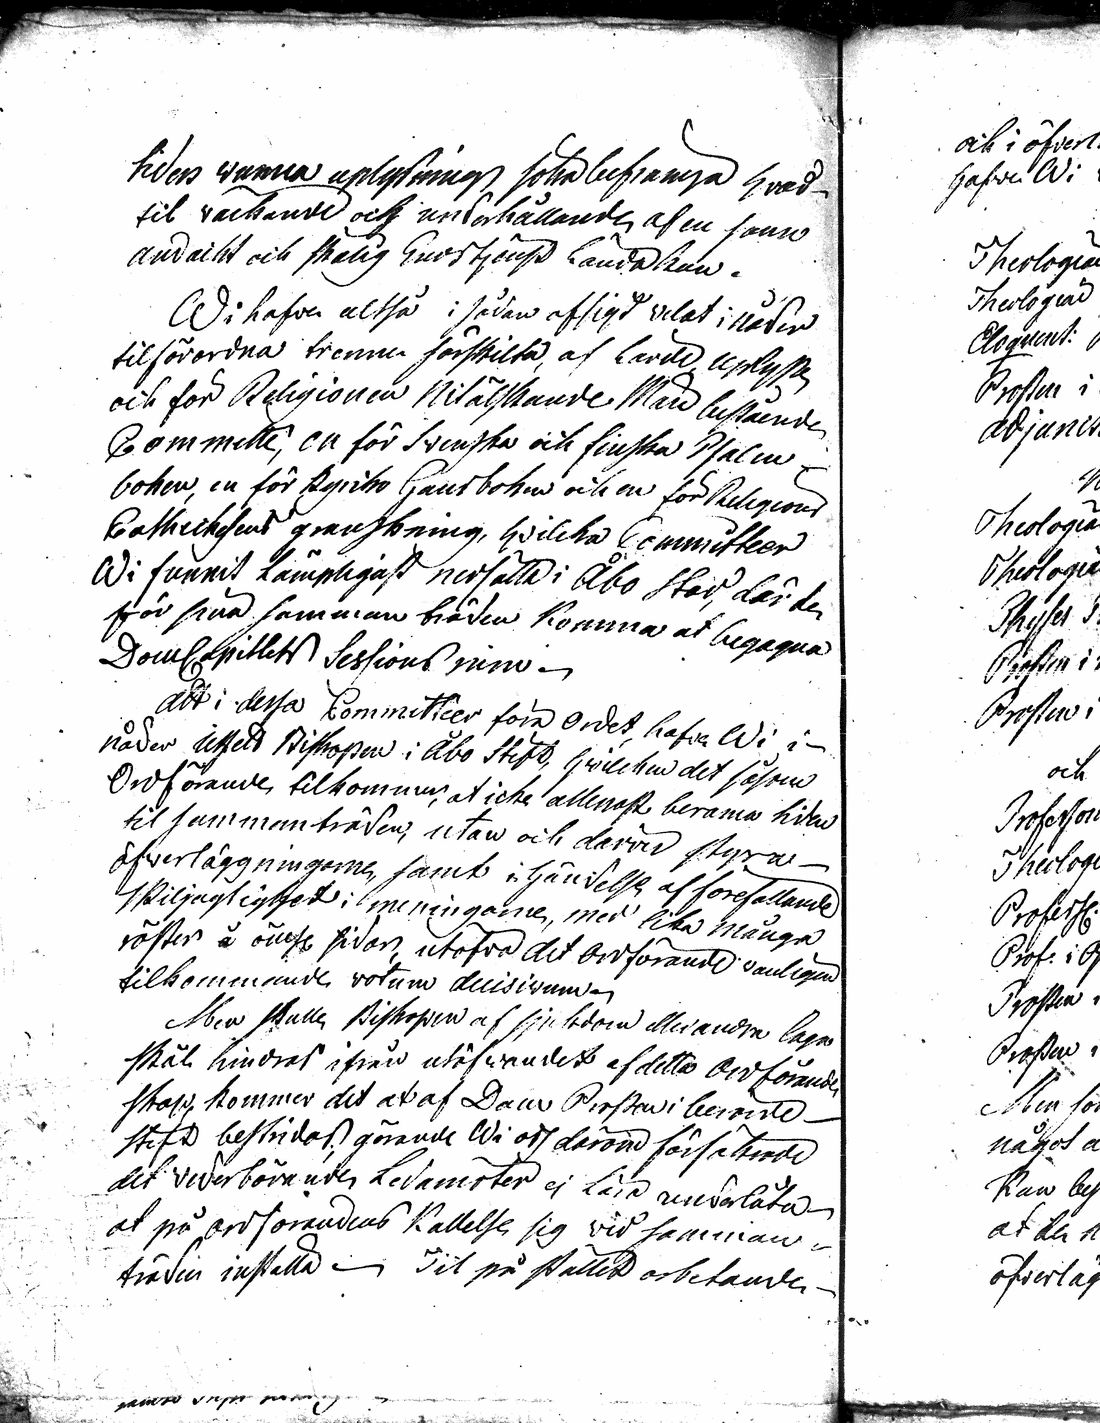 tidens wunna uplysning, söka befrämja hvad
til väckande och underhållande af en sann
andackt och skälig Gudstjenst lända kan.
Wi hafve altså i sådan afsigt velat i nåder
tilförordna trenne särskilta, af Lärde, uplyste
och för Religionen Nitälskande Män bestående
Committé, en för Svenska och finska Psalm-
boken, en för Kyrko Handboken och en för Religions
Cathechesens granskning, hvilka Committeer
Wi funnit lämpligast nedsätta i Åbo Stad, där de
för sina sammanträden komma at begagna
DomCapitlets Sessions rum
Att i dessa Committéer föra Ordet, hafve Wi i
nåder utsedt Biskopen i Åbo Stift, hvilcken det såsom
Ordförande tilkommer, at icke allenast berama tiden
til sammanträden, utan och därvid styra
öfverläggningarne, samt i händelse af förefallande
skiljagtighet i meningarne, med lika många
röster å ömse sidor, utöfva det Ordförande vanligen
tilkommande votum decisivum
Men skulle Biskopen af sjukdom eller andra laga
skäl hindras ifrån utöfvandet af detta Ordförande
skap, kommer det at af Dom Prosten i berörde
stift bestridas, görande Wi oss därom försäkrade
det vederbörande Ledamöter ej lära underlåta
at på ordförandens Kallelse sig vid samman-
träden inställa Til på stället arbetande
och i öfverl
hafve Wi
Theologiæ
Theologiæ
Eloquent:
Prosten i
Adjuncten
Theologiæ
Theologiæ
Physes
Prosten i
Prosten i
och
Professor
Theologi
Profess:
Prof: i
Prosten
Prosten
Men för
något a
Kan bes
at de n
öfverläg